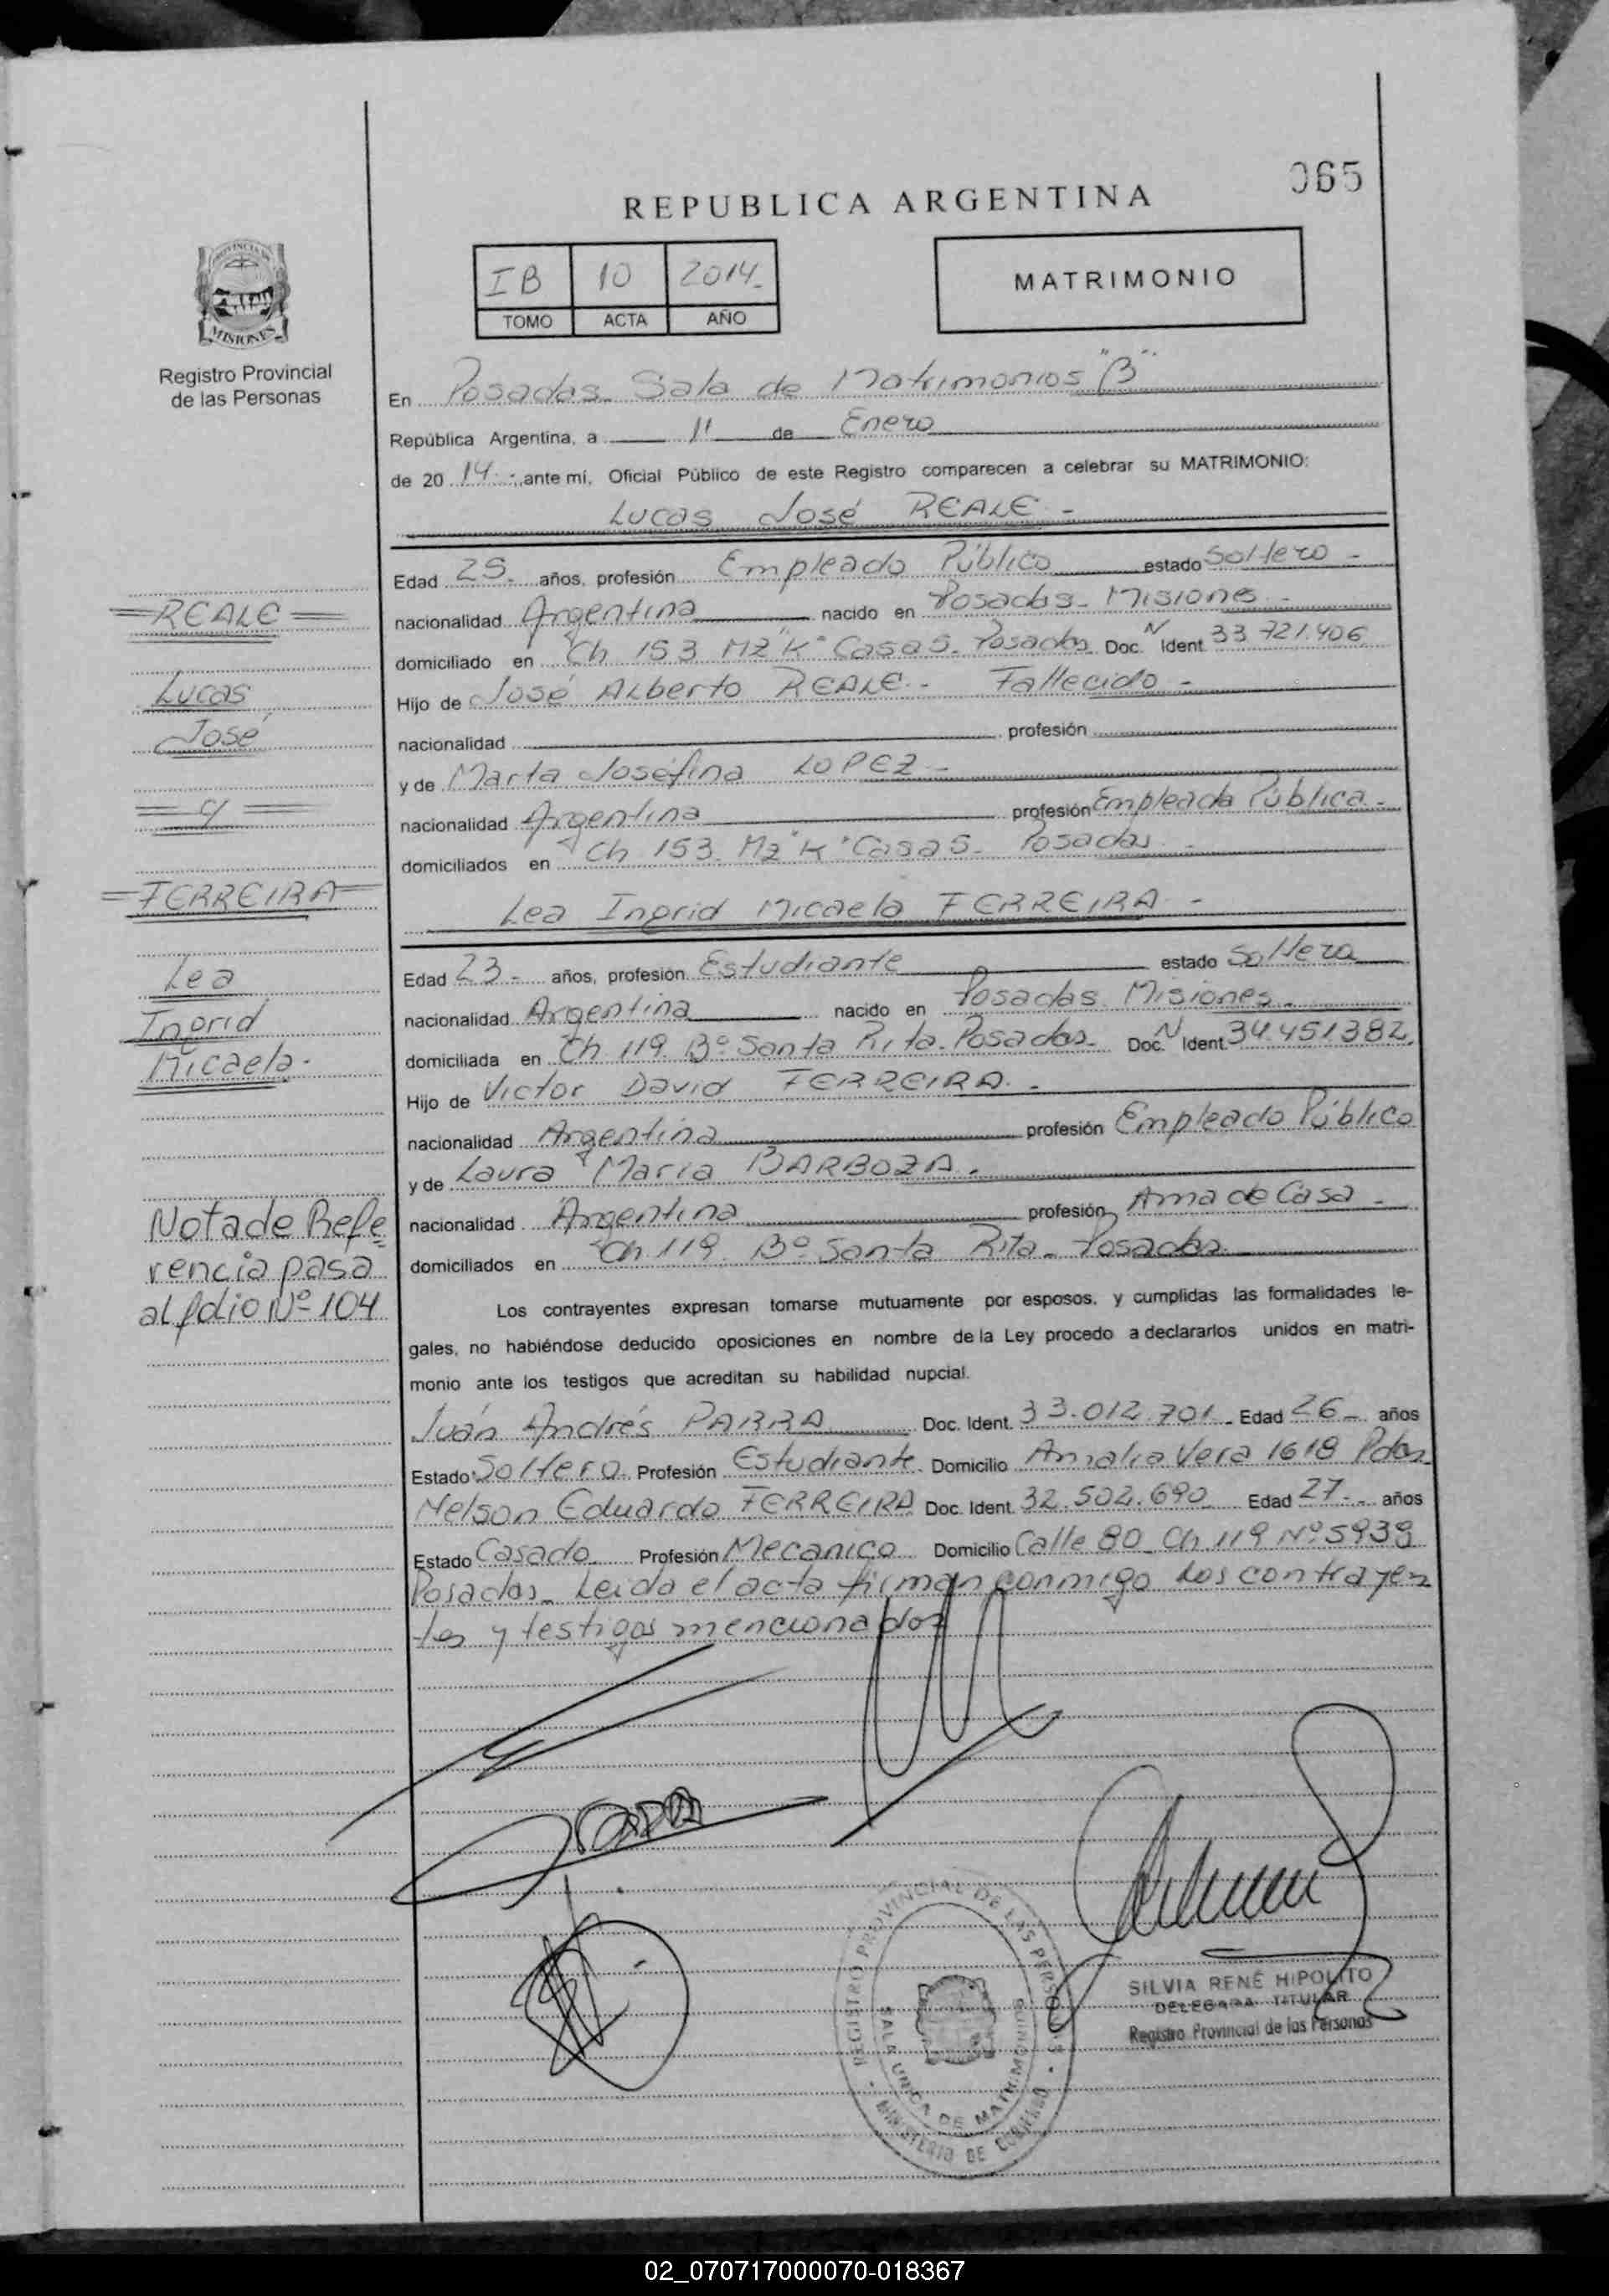 065
REPUBLICA ARGENTINA
IB 10 2014.
TOMO ACTA AÑO
MATRIMONIO
PROVINCIA DE
MISIONES
Registro Provincial
de las Personas
En Posadas. Sala de Matrimonios "B"
República Argentina, a 11 de Enero
de 20 14.-, ante mí, Oficial Público de este Registro comparecen a celebrar su MATRIMONIO:
Lucas José REALE -
Edad 25. años, profesión Empleado Público estado Soltero -
nacionalidad Argentina nacido en Posadas - Misiones -
domiciliado en Ch 153 Mz "K" Casa 5. Posadas Doc. N Ident. 33 721.406
Hijo de José Alberto REALE.- Fallecido -
nacionalidad profesión
y de Marta Josefina LOPEZ -
nacionalidad Argentina profesión Empleada Pública -
domiciliados en Ch 153. Mz "K" Casa 5. Posadas. -
Lea Ingrid Micaela FERREIRA. -
Edad 23 - años, profesión Estudiante estado Soltera
nacionalidad Argentina nacido en Posadas Misiones.
domiciliada en Ch 119 Bº Santa Rita. Posadas. Doc. N Ident. 34.451382.
Hijo de Victor David FERREIRA. -
nacionalidad Argentina profesión Empleado Público
y de Laura María BARBOZA.
nacionalidad Argentina profesión Ama de Casa -
domiciliados en Ch 119 Bº Santa Rita - Posadas
Los contrayentes expresan tomarse mutuamente por esposos, y cumplidas las formalidades le-
gales, no habiéndose deducido oposiciones en nombre de la Ley procedo a declararlos unidos en matri-
monio ante los testigos que acreditan su habilidad nupcial.
Juán Andrés PARRA Doc. Ident. 33.012.701 Edad 26 - años
Estado Soltero. Profesión Estudiante Domicilio Amalia Vera 1618 Pdas
Nelson Eduardo FERREIRA Doc. Ident. 32.502.690 Edad 27 - años
Estado Casado Profesión Mecanico Domicilio Calle 80. Ch 119 Nº 5939
Posadas. Leida el acta firman conmigo los contrayen
tes y testigos mencionados
=REALE=
Lucas
José
= y =
=FERREIRA=
Lea
Ingrid
Micaela-
Nota de Refe
rencia pasa
al folio Nº 104
REGISTRO PROVINCIAL DE LAS PERSONAS
SALA UNICA DE MATRIMONIOS
MINISTERIO DE GOBIERNO
SILVIA RENÉ HIPOLITO
DELEGADA TITULAR
Registro Provincial de las Personas
02_070717000070-018367